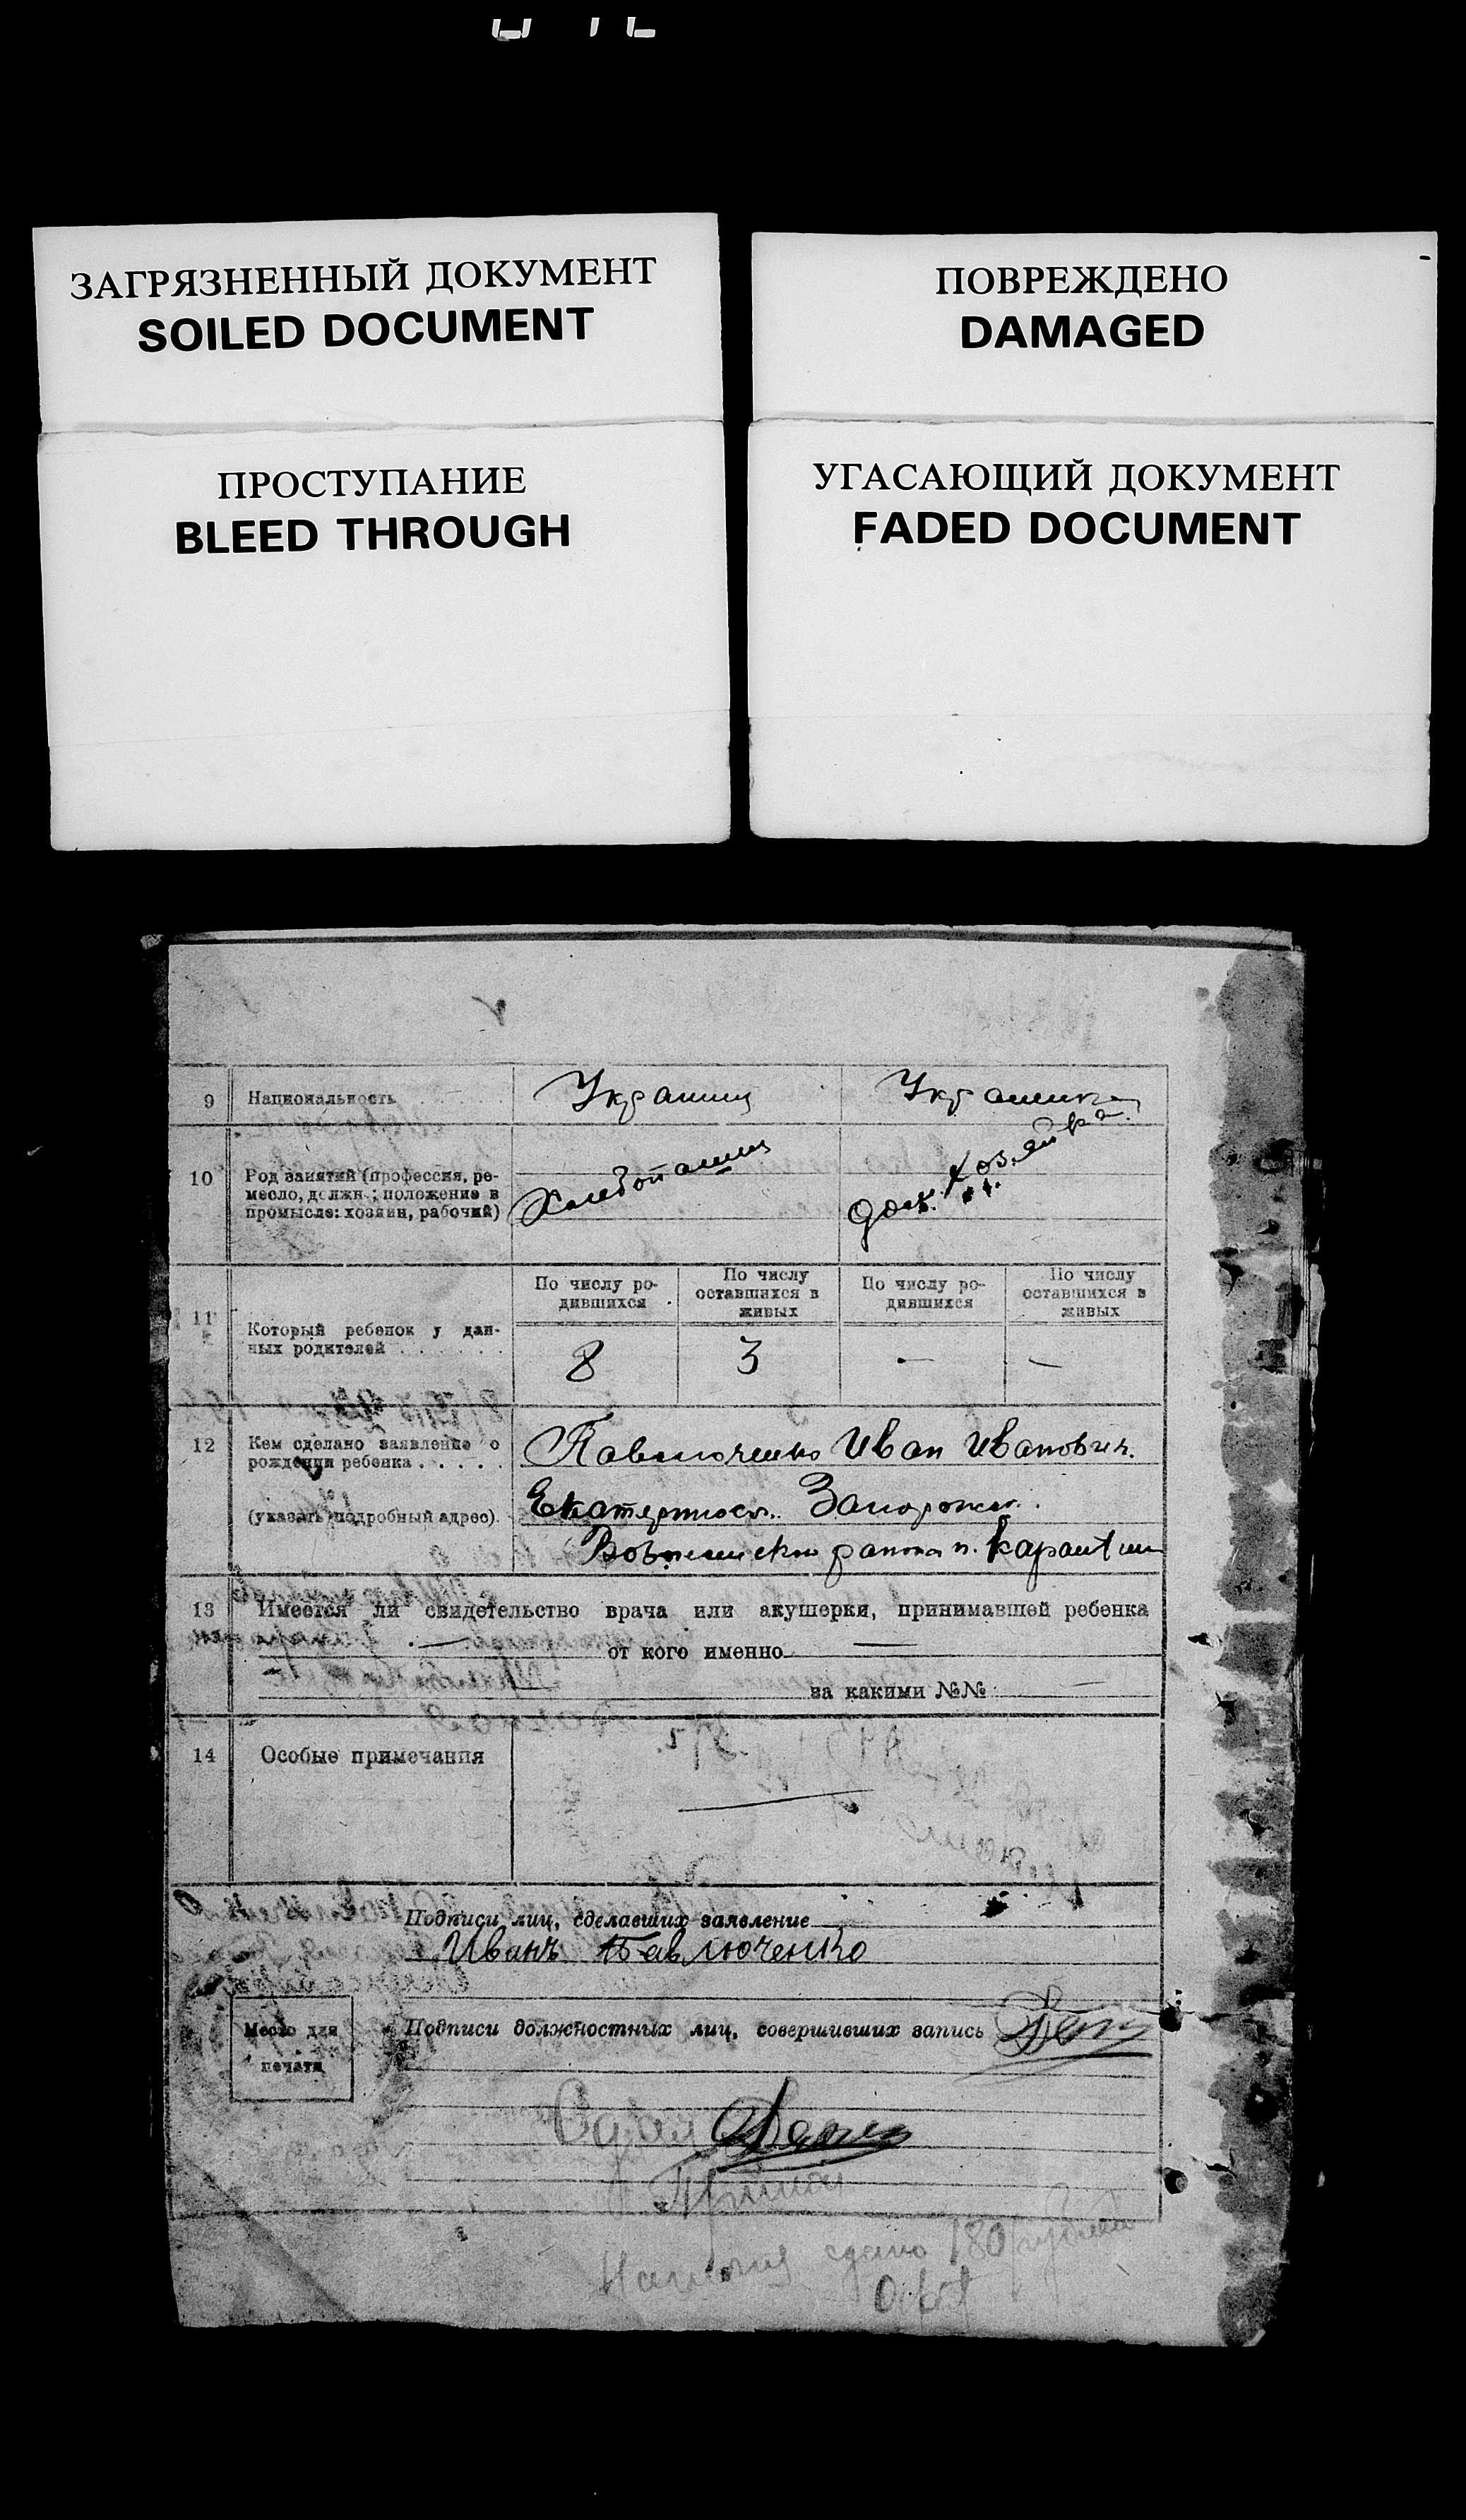 ЗАГРЯЗНЕННЫЙ ДОКУМЕНТ
SOILED DOCUMENT
ПОВРЕЖДЕНО
DAMAGED
ПРОСТУПАНИЕ
BLEED THROUGH
УГАСАЮЩИЙ ДОКУМЕНТ
FADED DOCUMENT
9 Национальность
Украинц
Украинка
10 Род занятий (профессия, ре-
месло, должн.; положение в
промысле: хозяин, рабочий)
Хлебопашец
дом. хозяйка.
11 Который ребенок у дан-
ных родителей . . . . . .
По числу ро-
дившихся
По числу
оставшихся в
живых
По числу ро-
дившихся
По числу
оставшихся в
живых
8 3 — —
12 Кем сделано заявление о
рождении ребенка . . . . .
(указать подробный адрес).
Павлюченко Иван Иванович.
Екатериносл. Запорожск.
района п. Карантин
13 Имеется ли свидетельство врача или акушерки, принимавшей ребенка
— от кого именно —
за какими №№
14 Особые примечания
—
Подписи лиц, сделавших заявление
Иванъ Павлюченко
Место для
печати
Подписи должностных лиц, совершивших запись
180 рублей